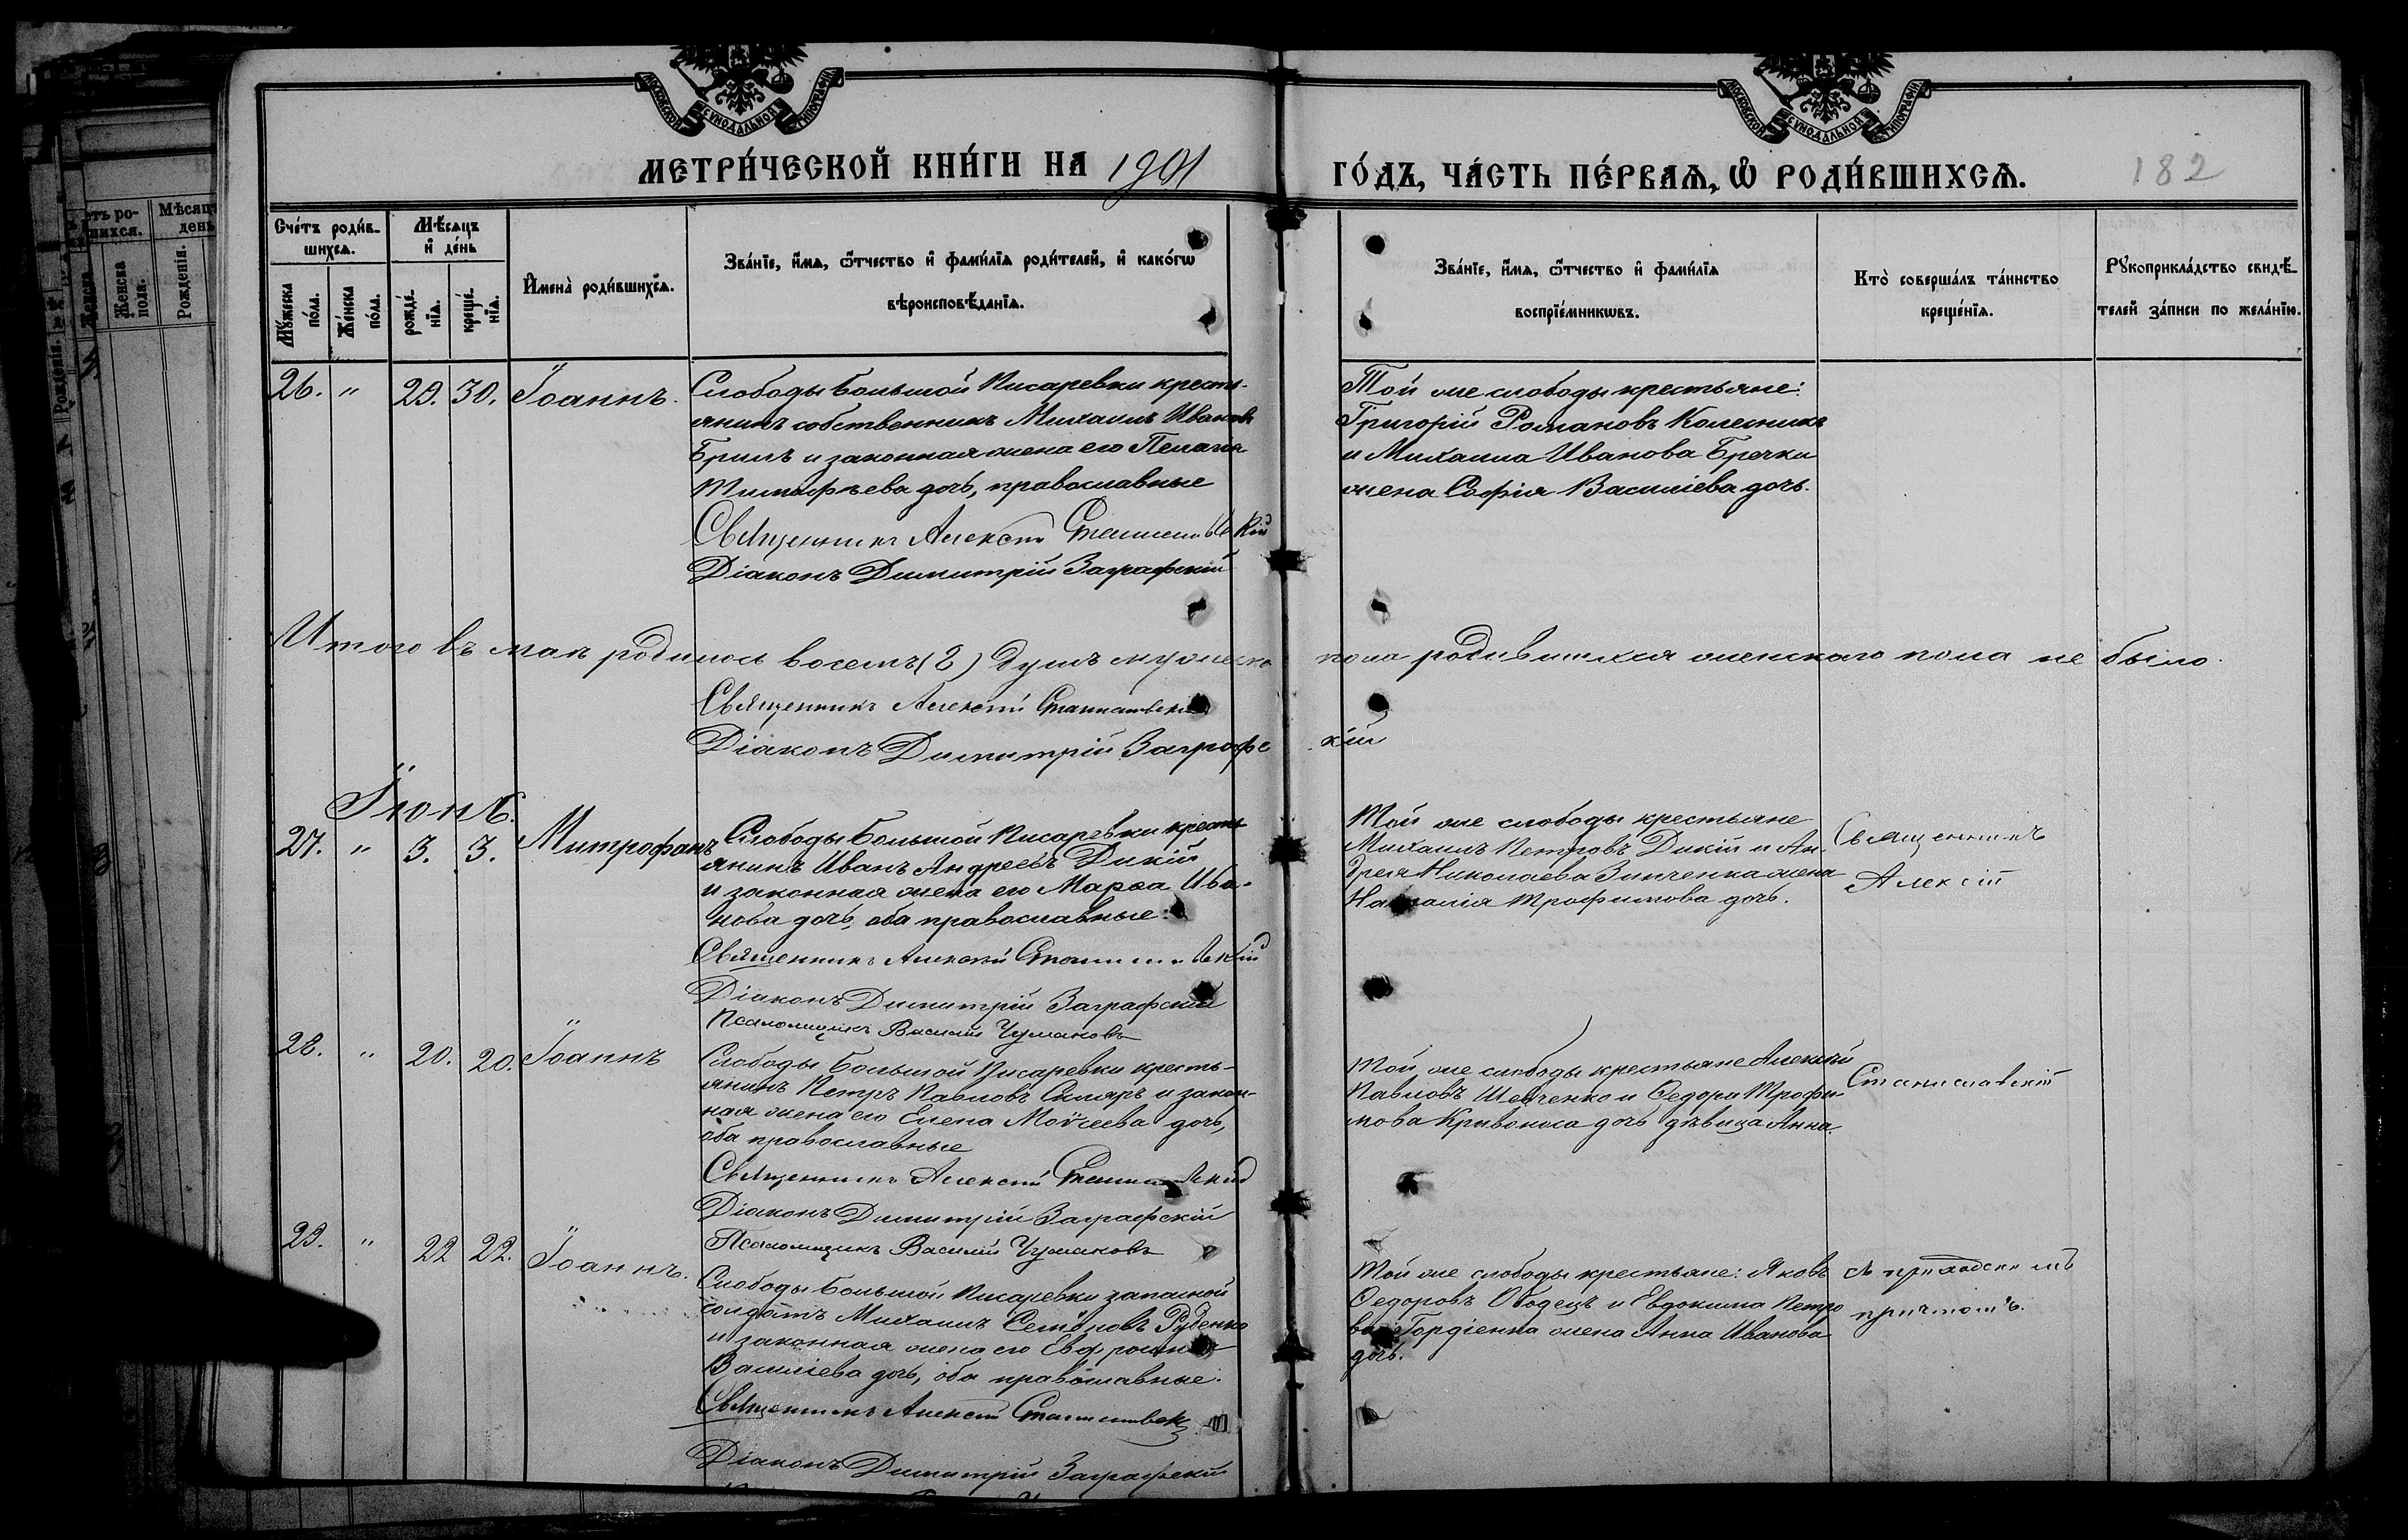 МОСКОВСКОЙ СѴНОДАЛЬНОЙ ТИПОГРАФІИ
МОСКОВСКОЙ СѴНОДАЛЬНОЙ ТИПОГРАФІИ
МЕТРИ́ЧЕСКОЙ КНИ́ГИ НА 1901
ГО́ДЪ, ЧА́СТЬ ПЕ́РВАѦ, Ѽ РОДИ́ВШИХСѦ.
182
Сче́тъ роди́в-
шихсѧ.
Мꙋ́жеска
по́ла.
Же́нска
по́ла.
Мѣ́сѧцъ
и҆ де́нь
рожде́-
нїѧ.
креще́-
нїѧ.
И҆мена̀ роди́вшихсѧ.
Зва́нїе, и҆́мѧ, ѻ҆́тчество и҆ фами́лїѧ роди́телей, и҆ како́гѡ
вѣроисповѣ́данїѧ.
Зва́нїе, и҆́мѧ, ѻ҆́тчество и҆ фами́лїѧ
воспрїе́мникѡвъ.
Кто̀ соверша́лъ та́инство
креще́нїѧ.
Рꙋкоприкла́дство свидѣ́-
телей за́писи по жела́нїю.
26. " 29. 30. Іоаннъ.
Слободы Большой Писаревки кресть-
янинъ собственникъ Михаилъ Ивановъ
Бриль и законная жена его Пелагія
Тимофѣева дочь, православные
Священникъ Алексій Станиславскій
Діаконъ Димитрій Заграфскій
Той же слободы крестьяне:
Григорій Романовъ Колесникъ
и Михаила Иванова Бречки
жена Софія Василіева дочь.
Итого въ маѣ родилось восемь (8) душъ мужеска пола родившихся женскаго пола не было.
Священникъ Алексій Станиславскій
Діаконъ Димитрій Заграфскій
Іюнь.
27. " 3. 3. Митрофанъ
Слободы Большой Писаревки кресть
янинъ Иванъ Андреевъ Дикій
и законная жена его Марѳа Ива-
нова дочь, оба православные:
Священникъ Алексій Станиславскій
Діаконъ Димитрій Заграфскій
Псаломщикъ Василій Чумаковъ
Той же слободы крестьяне
Михаилъ Петровъ Дикій и Ан-
дрея Николаева Зинченка жена
Наталія Трофимова дочь.
Священникъ
Алексій
28. " 20. 20. Іоаннъ
Слободы Большой Писаревки кресть-
янинъ Петръ Павловъ Скляръ и закон-
ная жена его Елена Моѵсеева дочь,
оба православные
Священникъ Алексій Станиславскій
Діаконъ Димитрій Заграфскій
Псаломщикъ Василій Чумаковъ
Той же слободы крестьяне Алексѣй
Павловъ Шевченко и Ѳедора Трофи-
мова Кривоноса дочь дѣвица Анна.
Станиславскій
29. " 22 22. Іоаннъ.
Слободы Большой Писаревки запасной
солдатъ Михаилъ Семёновъ Руденко
и законная жена его Евфросинія
Василіева дочь, оба православные.
Священникъ Алексій Станиславскій
Діаконъ Димитрій Заграфскій
Той же слободы крестьяне: Яковъ
Ѳедоровъ Ободецъ и Евдокима Петро
ва Гордіенка жена Анна Иванова
дочь.
съ приходскимъ
причтомъ.